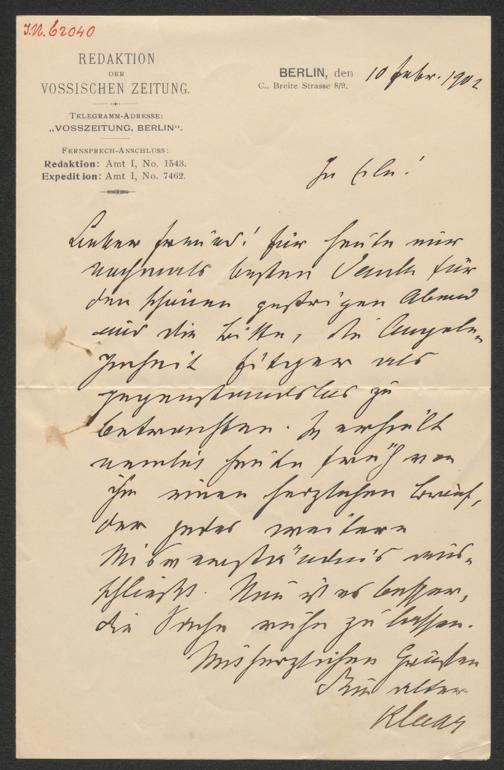 I.N. 62040
REDAKTION
DER
VOSSISCHEN ZEITUNG.
TELEGRAMM-ADRESSE:
„VOSSZEITUNG, BERLIN“.
FERNSPRECH-ANSCHLUSS:
Redaktion: Amt I, No. 1543.
Expedition: Amt I, No. 7462.
BERLIN, den 10 Febr. 1902
C., Breite Strasse 8/9.
In Eile!
Lieber Freund! Für heute nur
nochmals besten Dank für
den schönen gestrigen Abend
und die Bitte, die Angele-
genheit Fitger als
gegenstandslos zu
betrachten. Ich erhielt
nemlich heute früh von
ihm einen herzlichen Brief,
der jedes weitere
Missverständnis aus-
schließt. Nun ist es besser,
die Sache ruhn zu lassen.
Mit herzlichen Grüßen
Ihr alter
Klaar